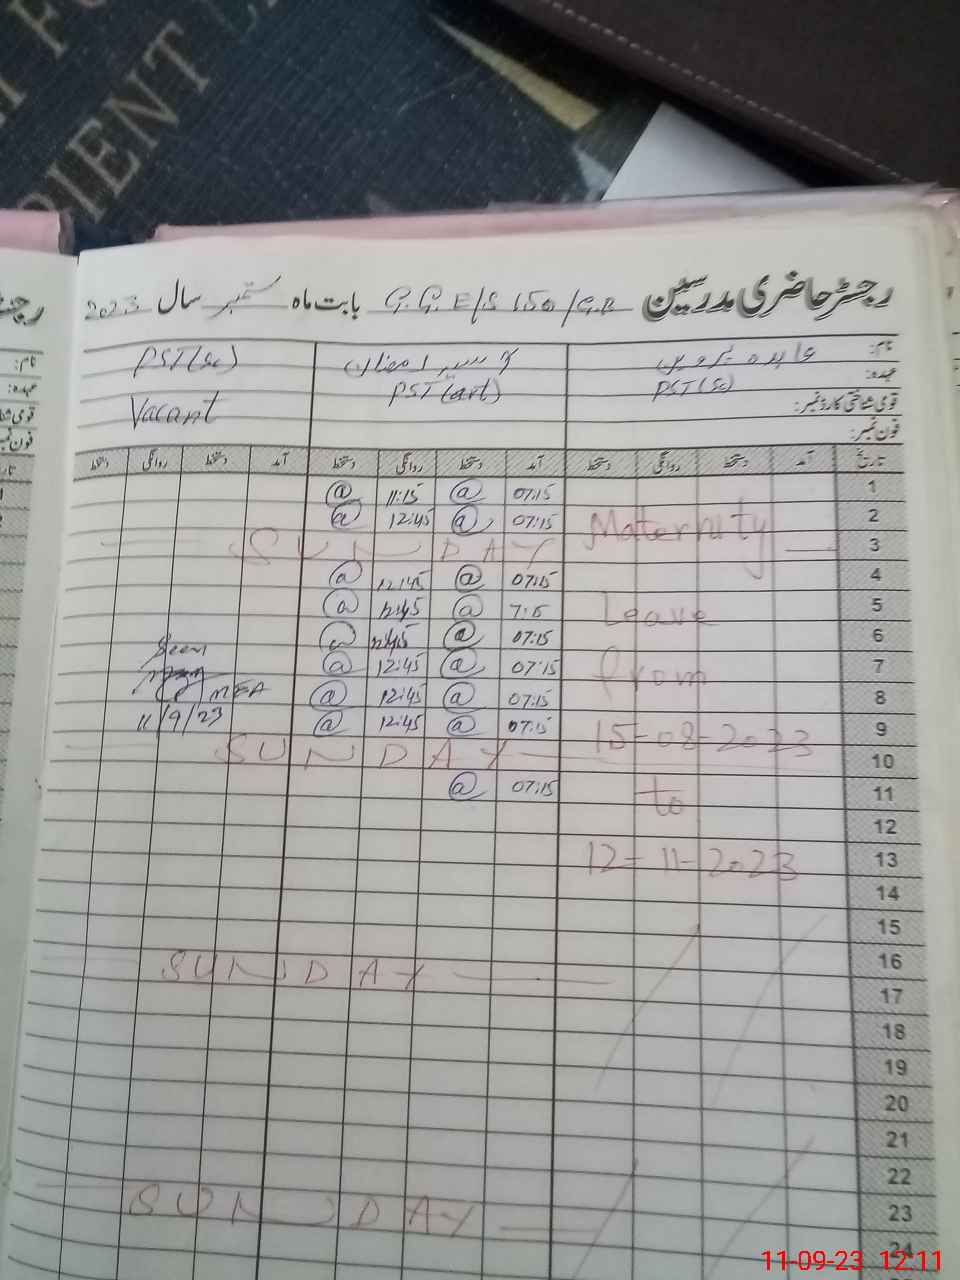 رجسٹر حاضری مدرسین G.G.E/S 150/G.B بابت ماہ ستمبر سال 2023
نام: عابدہ پروین
PST(Sc)
عہدہ: PST(Sc) PST(art)
قومی شناختی کارڈ نمبر: Vacant
فون نمبر:
تاریخ آمد دستخط روانگی دستخط آمد دستخط روانگی دستخط آمد دستخط روانگی دستخط
1 07:15 @ 11:15 @
2 Maternity 07:15 @ 12:45 @
3 SUNDAY
4 07:15 @ 12:45 @
5 Leave 7:15 @ 12:45 @
6 07:15 @ 12:45 @
7 from 07:15 @ 12:45 @ Seen
8 07:15 @ 12:45 @ MEA
9 15-08-2023 07:15 @ 12:45 @ 11/9/23
10 SUNDAY
11 to 07:15 @
12
13 12-11-2023
14
15
16 SUNDAY
17
18
19
20
21
22
23 SUNDAY
24
11-09-23 12:11